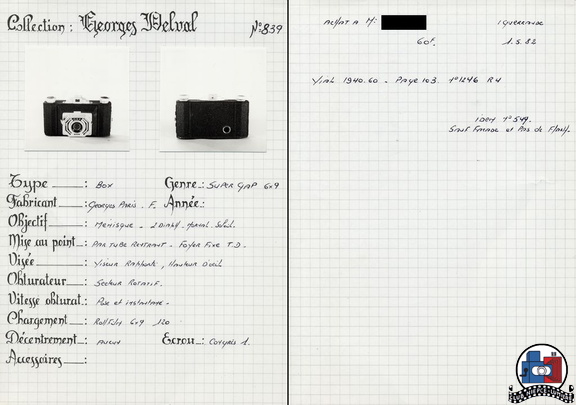 Collection : Georges Delval N° 839
Type : Box Genre : SUPER GAP 6x9
Fabricant : Georges Paris . F. Année :
Objectif : Ménisque - 2 Diaph. Normal. Soleil.
Mise au point : Par tube rentrant - Foyer Fixe T.D.
Visée : Viseur Rabattant, Hauteur D'oeil
Obturateur : Secteur Rotatif.
Vitesse obturat. : Pose et instantané -
Chargement : Rollfilm 6x9 120
Décentrement : aucun Ecrou : Congrès 1.
Accessoires :
ACHAT A M:
60F. 1.5.82
Vial 1940.60 - Page 103. N° 1246 R4
IDEM N° 549.
Sauf